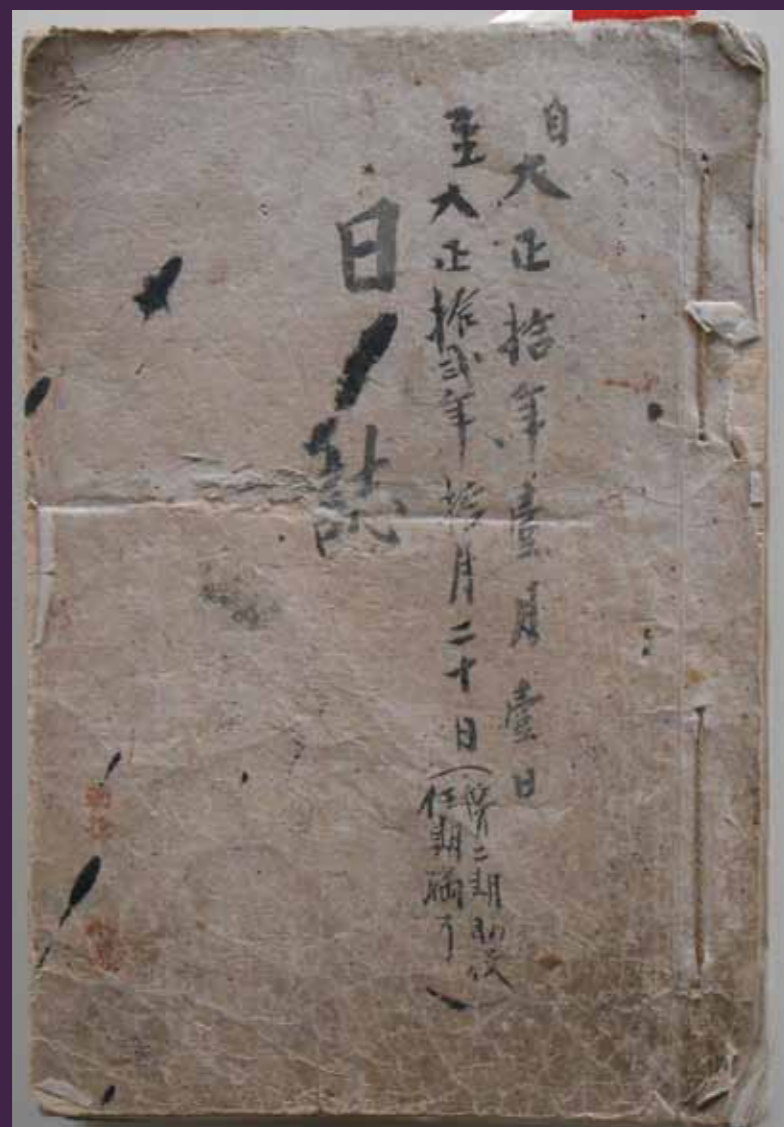 自大正拾年壹月壹日
至大正拾貳年拾月二十日(第二期助役
任期満了)
日誌